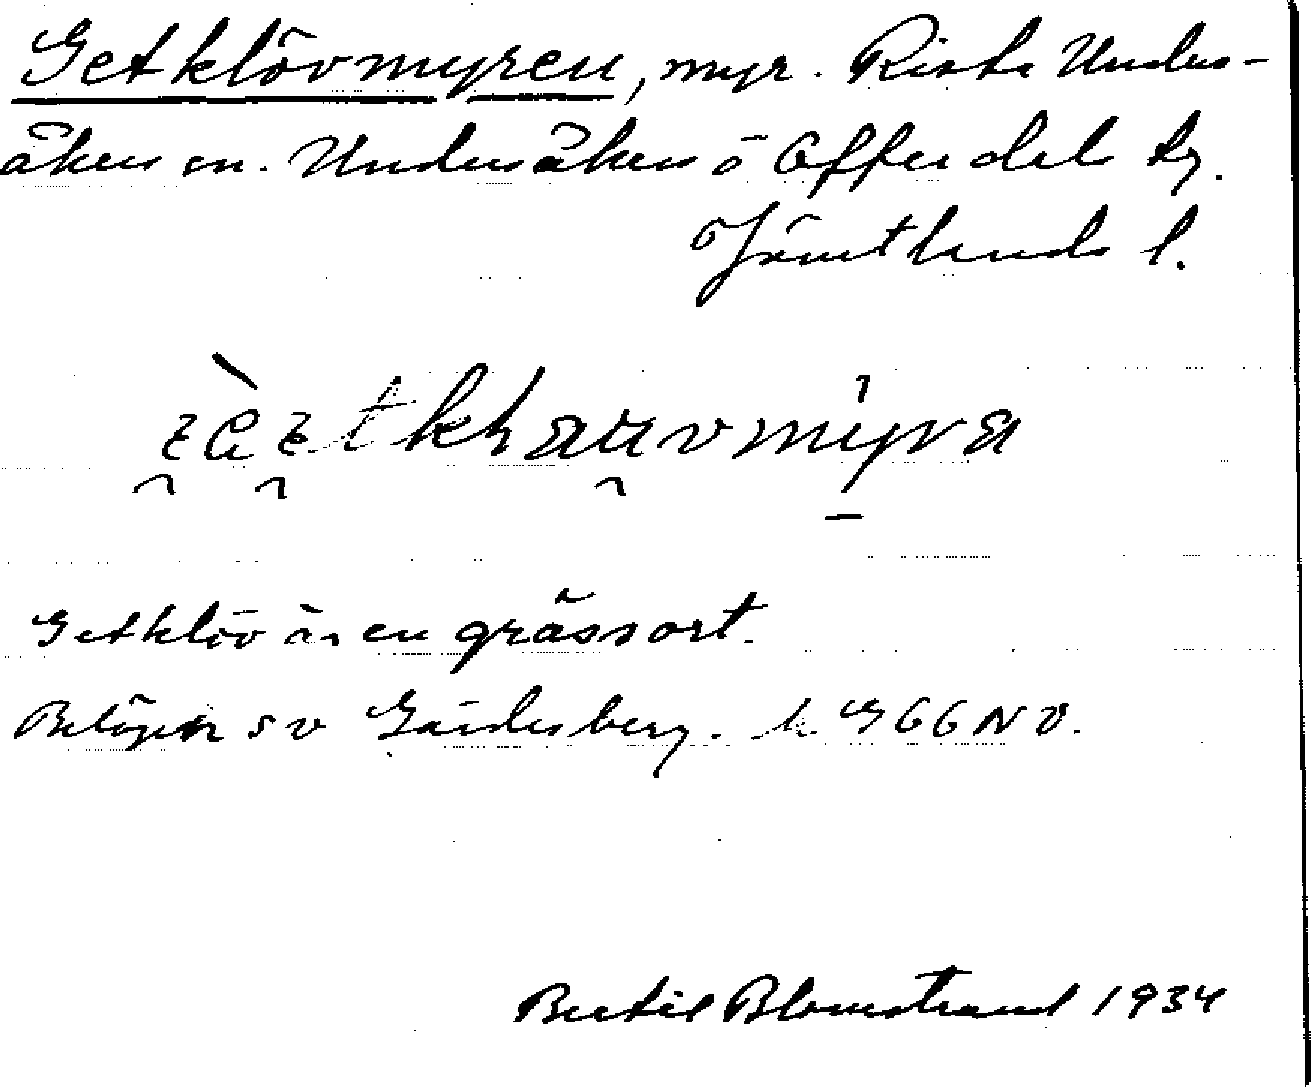 Getklövmyren, myr. Rista Unders-
åkers sn. Undersåkers o Offerdals tg.
Jämtlands l.
Getklöv är en grässort.
Belägen sv Gaidesberg. k. 966 NV.
Bertil Blomstrand 1934